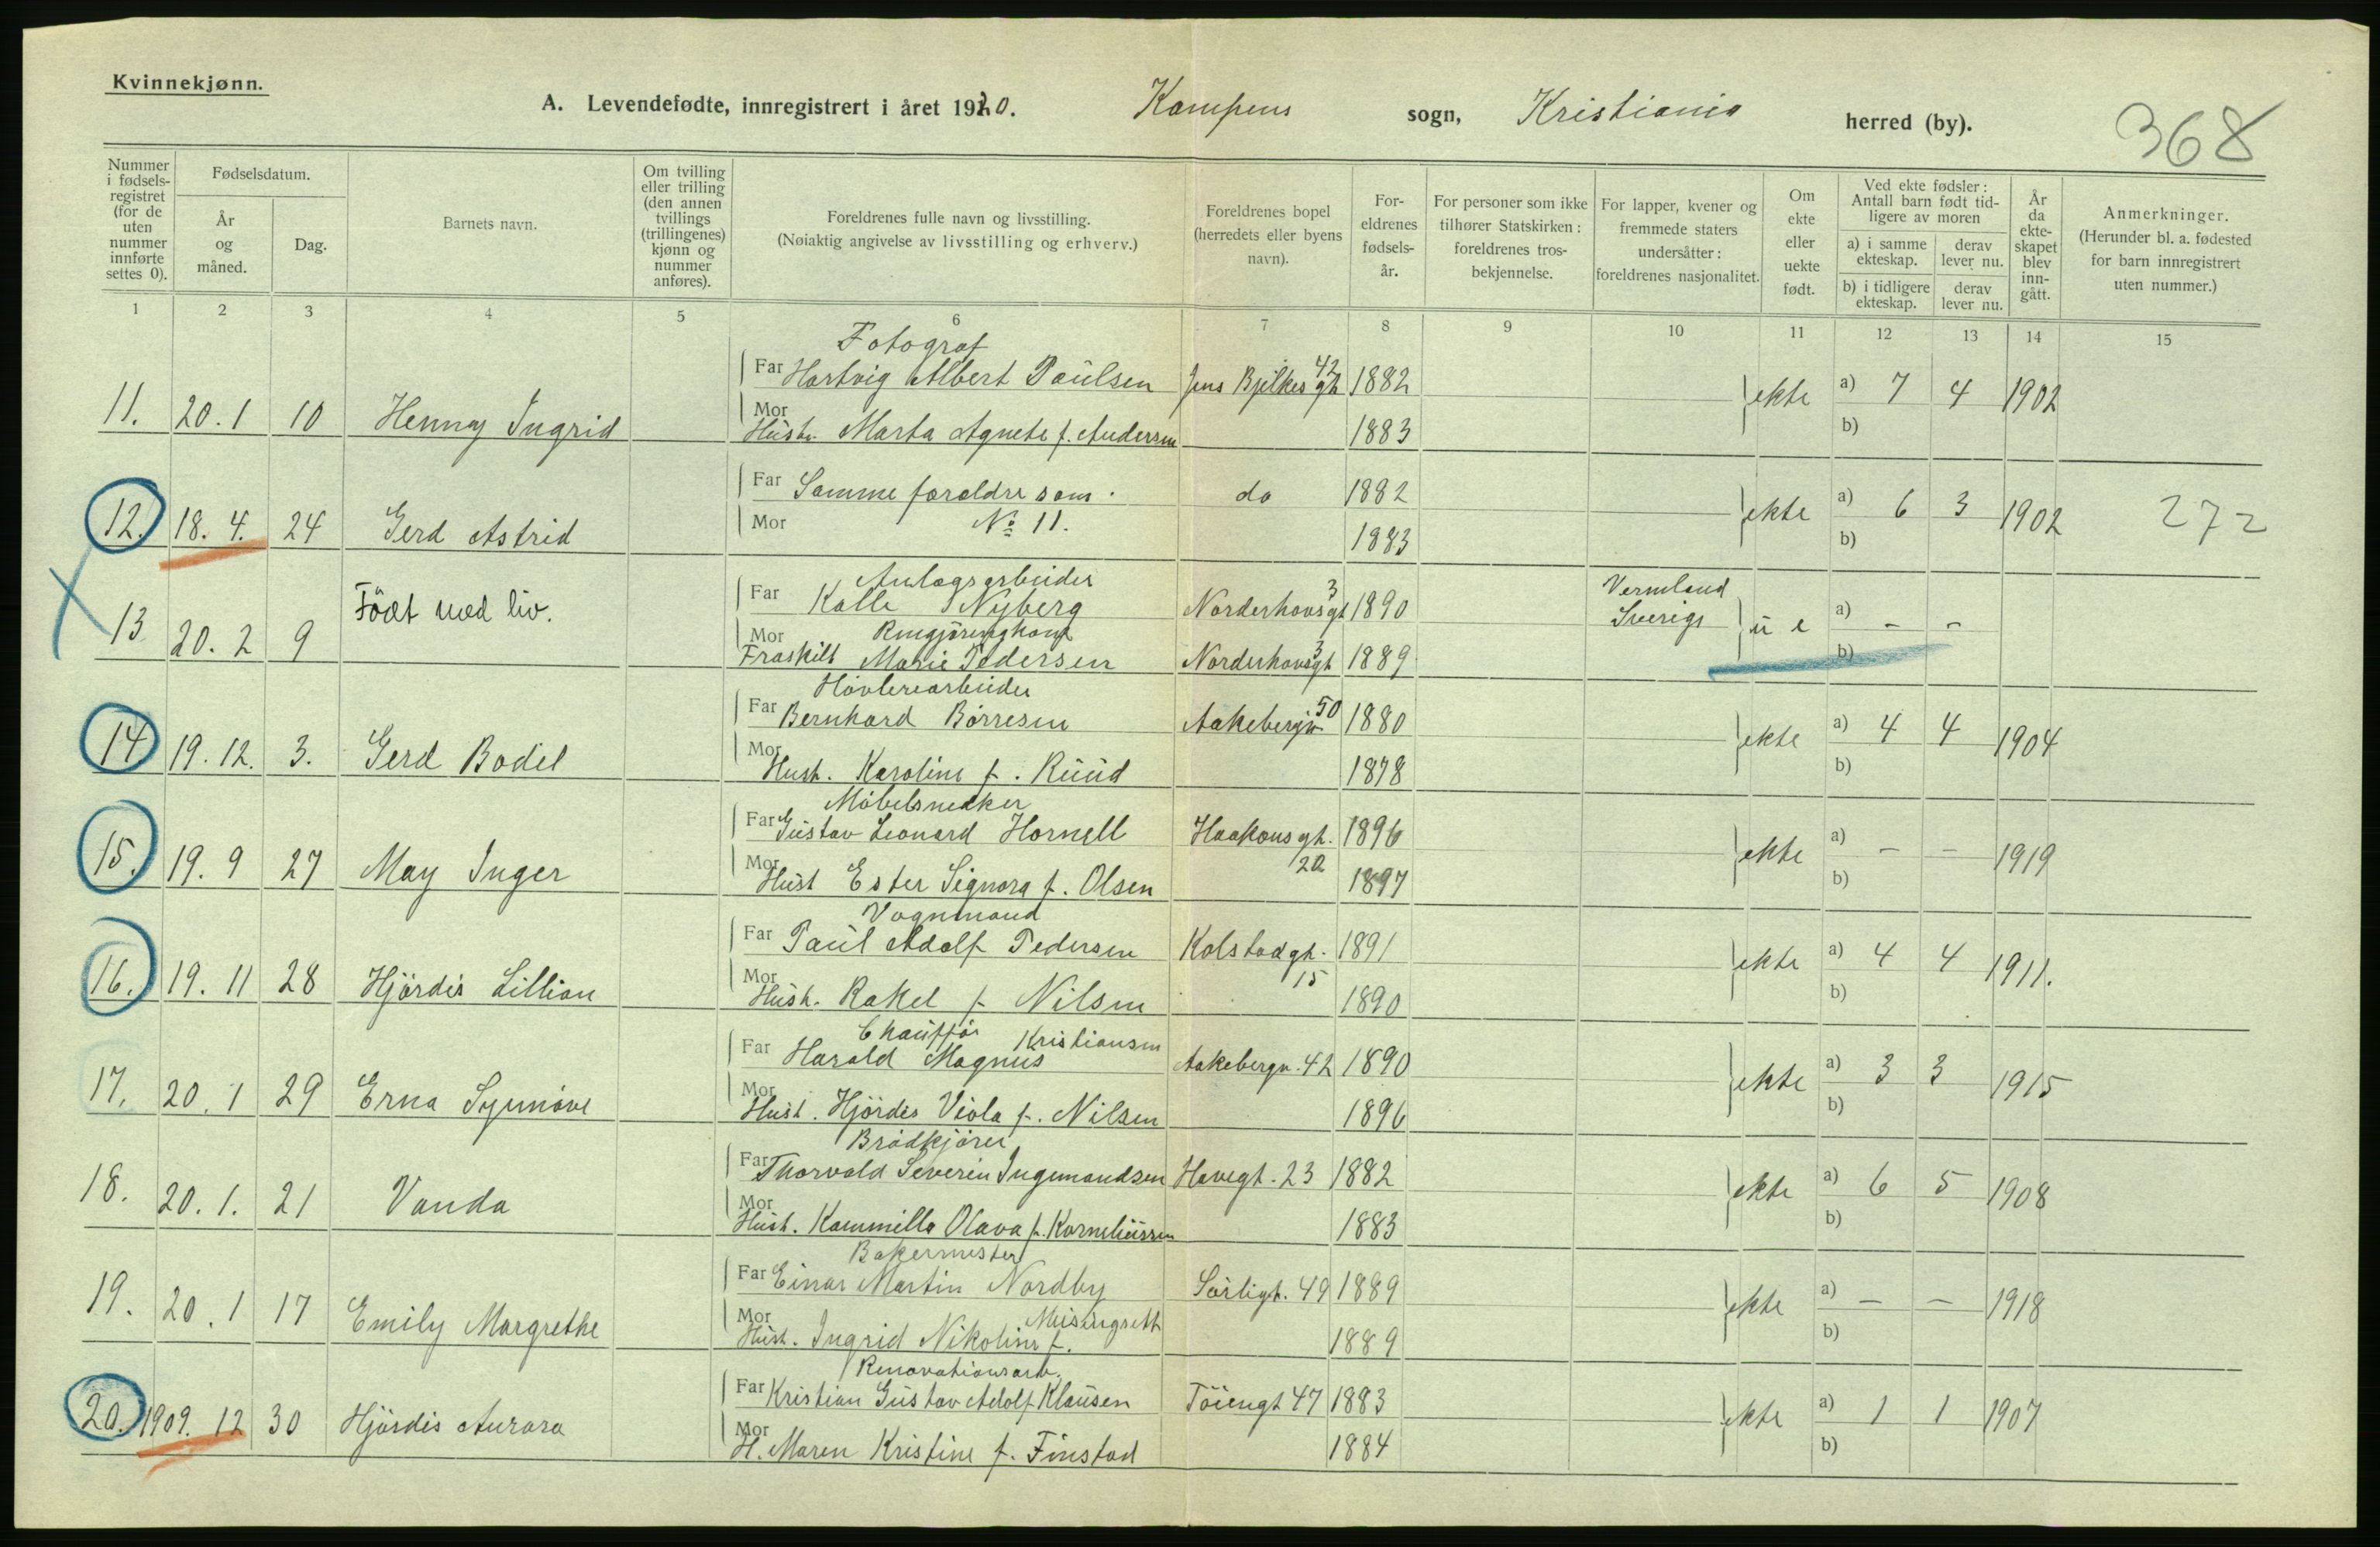 Kvinnekjønn.
A. Levendefødte, innregistrert i året 1920. Kampens sogn, Kristiania herred (by).
368
Nummer i fødsels-registret (for de uten nummer innførte settes 0).
Fødselsdatum.
År og måned.
Dag.
Barnets navn.
Om tvilling eller trilling (den annen tvillings (trillingenes) kjønn og nummer anføres).
Foreldrenes fulle navn og livsstilling.
(Nøiaktig angivelse av livsstilling og erhverv.)
Foreldrenes bopel (herredets eller byens navn).
For-eldrenes fødsels-år.
For personer som ikke tilhører Statskirken: foreldrenes tros-bekjennelse.
For lapper, kvener og fremmede staters undersåtter: foreldrenes nasjonalitet.
Om ekte eller uekte født.
Ved ekte fødsler: Antall barn født tid-ligere av moren
a) i samme ekteskap.
derav lever nu.
b) i tidligere ekteskap.
derav lever nu.
År da ekte-skapet blev inn-gått.
Anmerkninger.
(Herunder bl. a. fødested for barn innregistrert uten nummer.)
1 2 3 4 5 6 7 8 9 10 11 12 13 14 15
Fotograf
Far Hartvig Albert Paulsen Jens Bjelkes gt 42 1882
11. 20.1 10 Henny Ingrid ekte a) 7 4 1902
Mor Hustr. Marta Agnete f. Andersen 1883 b)
Far Samme foreldre som do 1882
12. 18.4. 24 Gerd Astrid ekte a) 6 3 1902 272
Mor No 11. 1883 b)
Anlægsarbeider
Far Kalle Nyberg Norderhovsgt 3 1890 Vermland Sverige
13 20.2 9 Födt med liv. u e a) - -
Rengjøringskone
Mor Fraskilt Marie Pedersen Norderhovsgt 3 1889 b)
Høvleriarbeider
Far Bernhard Börresen Aakebergv 50 1880
14 19.12. 3. Gerd Bodil ekte a) 4 4 1904
Mor Hust. Karoline f. Ruud 1878 b)
Møbelsnedker
Far Gustav Leonard Hornell Haakonsgt. 20 1896
15. 19.9 27 May Inger ekte a) - - 1919
Mor Hust Ester Signora f. Olsen 1897 b)
Vognmand
Far Paul Adolf Pedersen Kolstadgt. 15 1891
16. 19.11 28 Hjördis Lillian ekte a) 4 4 1911.
Mor Hust. Rakel f. Nilsen 1890 b)
Chauffør
Far Harald Magnus Kristiansen Aakebergv. 42 1890
17. 20.1 29 Erna Synnöve ekte a) 3 3 1915
Mor Hust. Hjördis Viola f. Nilsen 1896 b)
Brödkjører
Far Thorvald Severin Ingemandsen Havegt. 23 1882
18. 20.1. 21 Vanda ekte a) 6 5 1908
Mor Hust. Kammilla Olava f. Korneliussen 1883 b)
Bakermester
Far Einar Martin Nordby Sörligt. 49 1889
19. 20.1 17 Emily Margrethe ekte a) - - 1918
Mor Hust. Ingrid Nikoline f. 1889 b)
Renovationsarb.
Far Kristian Gustav Adolf Klausen Töiengt 47 1883
20. 1909. 12 30 Hjördis Aurora ekte a) 1 1 1907
Mor H. Maren Kristine f. Finstad 1884 b)